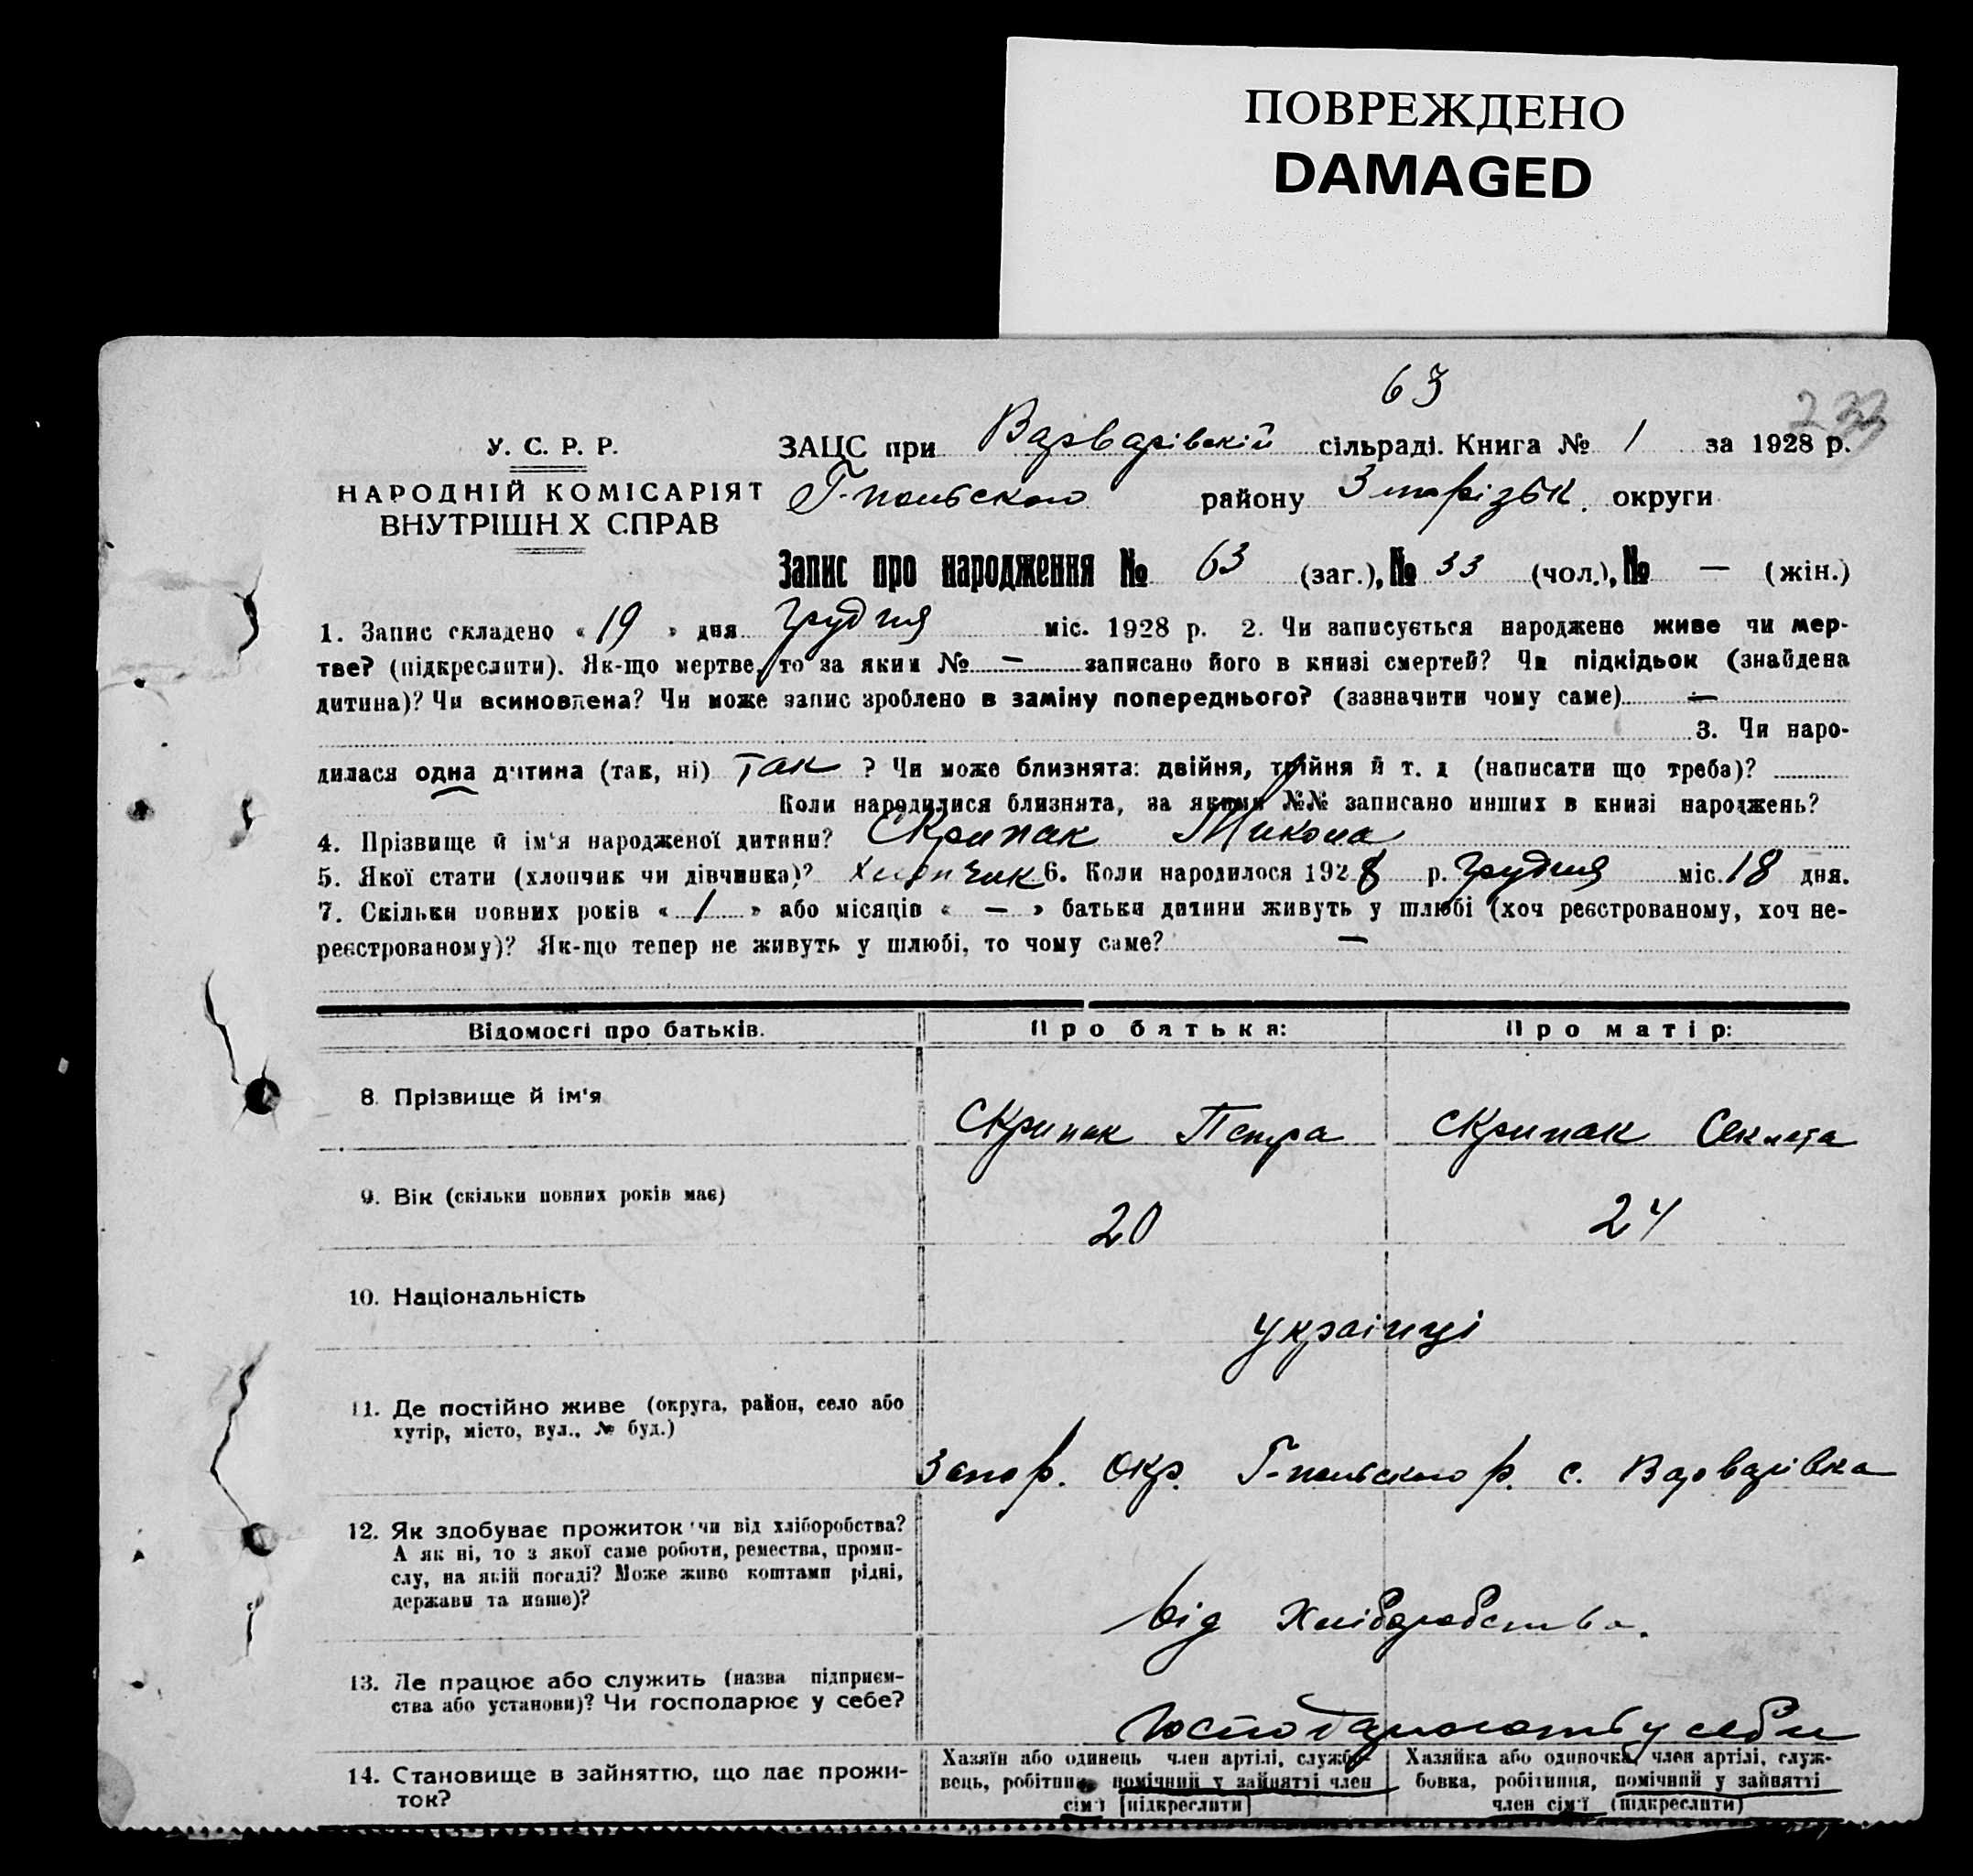 ПОВРЕЖДЕНО
DAMAGED
63
У. С. Р. Р.
НАРОДНІЙ КОМІСАРІЯТ
ВНУТРІШН Х СПРАВ
ЗАЦС при Варварівській сільраді. Книга № 1 за 1928 р.
Г-польського району Запорізьк. округи
Запис про народження № 63 (заг.), № 33 (чол.), № — (жін.)
1. Запис складено « 19 » дня грудня міс. 1928 р. 2. Чи записується народжене живе чи мер-
тве? (підкреслити). Як-що мертве, то за яким № — записано його в книзі смертей? Чи підкідьок (знайдена
дитина)? Чи всиновлена? Чи може запис зроблено в заміну попереднього? (зазначити чому саме) —
3. Чи наро-
дилася одна дитина (так, ні) Так ? Чи може близнята: двійня, трійня й т. д (написати що треба)?
Коли народилися близнята, за якими №№ записано инших в книзі народжень?
4. Прізвище й ім'я народженої дитини? Скрипак Микола
5. Якої стати (хлопчик чи дівчинка)? Хлопчик 6. Коли народилося 1928 р. грудня міс. 18 дня.
7. Скільки повних років « 1 » або місяців « — » батьки дитини живуть у шлюбі (хоч реєстрованому, хоч не-
реєстрованому)? Як-що тепер не живуть у шлюбі, то чому саме? —
Відомості про батьків. Про батька: Про матір:
8. Прізвище й ім'я Скрипак Петра Скрипак Секлета
9. Вік (скільки повних років має) 20 24
10. Національність українці
11. Де постійно живе (округа, район, село або
хутір, місто, вул., № буд.)
Запор. окр. Г-польського р. с. Варварівка
12. Як здобуває прожиток чи від хліборобства?
А як ні, то з якої саме роботи, ремества, проми-
слу, на якій посаді? Може живе коштами рідні,
держави та инше)?
від Хліборобства.
13. Де працює або служить (назва підприєм-
ства або установи)? Чи господарює у себе?
господарюють у себе
14. Становище в зайняттю, що дає прожи-
ток?
Хазяїн або одинець член артілі, службо-
вець, робітник помічний у зайнятті член
сім'ї [підкреслити]
Хазяйка або одиночка, член артілі, служ-
бовка, робітниця, помічний у зайнятті
член сім'ї (підкреслити)